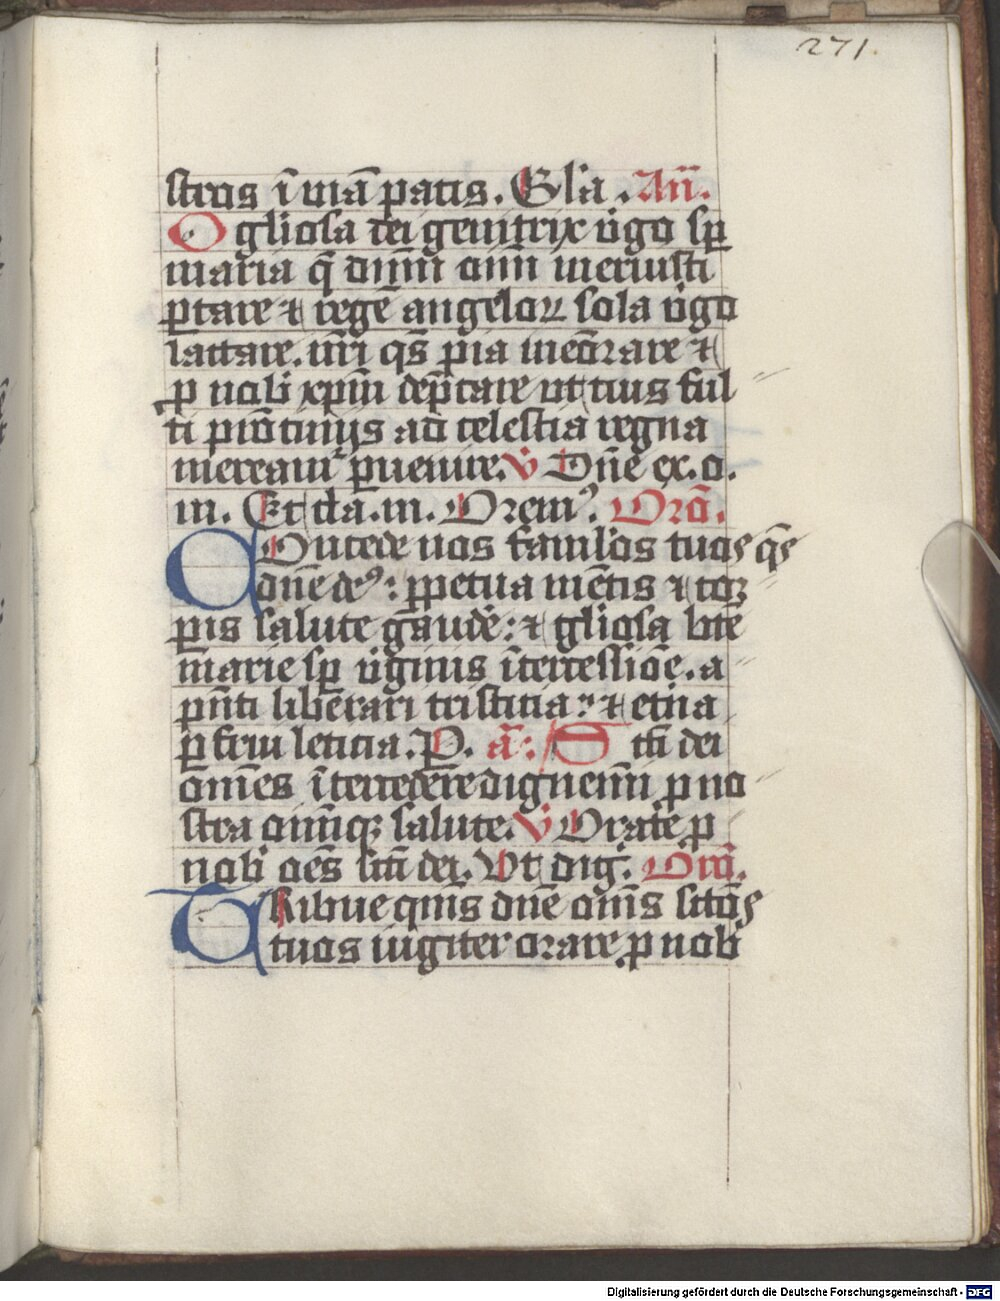 271.
stros ī viā pacis. Gl'a . An̄.
O gl'iosa dei genitrix v̾go sp̄
maria q̄ dn̄m om̄ meruisti
portare ⁊ regē angeloꝝ sola v̾go
lactare. nr̄i qs̄ pia memōrare ⁊
ꝑ nob̾ xp̄m dep̄care ut tuis ful
ti pr̄ocinijs ad celestia regna
mereamr̾ ꝑuenire. V̾ Dn̄e ex. o.
m. Et cla. m. Oremꝰ. Orō.
Concede nos famlos tuos qs̄
dn̄e deꝰ: ꝑpetua mētis ⁊ cor
pis salute gaudē: ⁊ gl'iosa bt̄e
marie sp̄ v̾ginis ītercessiōe. a
pn̄ti liberari tristicia: ⁊ et̾na
ꝑfrui leticia. P. ā: S cti dei
om̄es ītercedere dignemī ꝓ no
stra om̄iqꝫ salute. V̾ Orate ꝓ
nob̾ oēs sc̄ti dei. Vt dig. Orō.
Tribue qm̄s dn̄e om̄s sctōs
tuos iugiter orare ꝓ nob̾
Digitalisierung gefördert durch die Deutsche Forschungsgemeinschaft - DFG